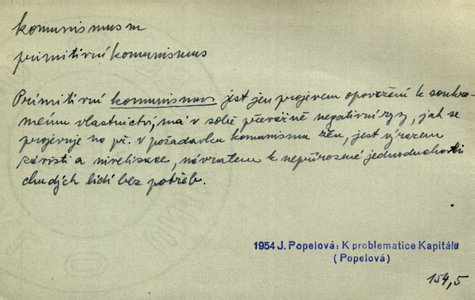 komunismus m
primitivní komunismus
Primitivní komunismus jest jen projevem opovržení k soukro-
mému vlastnictví, má v sobě převážně negativní rysy, jak se
projevuje na př. v požadavku komunismu žen, jest výrazem
závisti a nivelisace, návratem k nepřirozené jednoduchosti
chudých lidí bez potřeb.
1954 J. Popelová: K problematice Kapitálu
(Popelová)
154,5